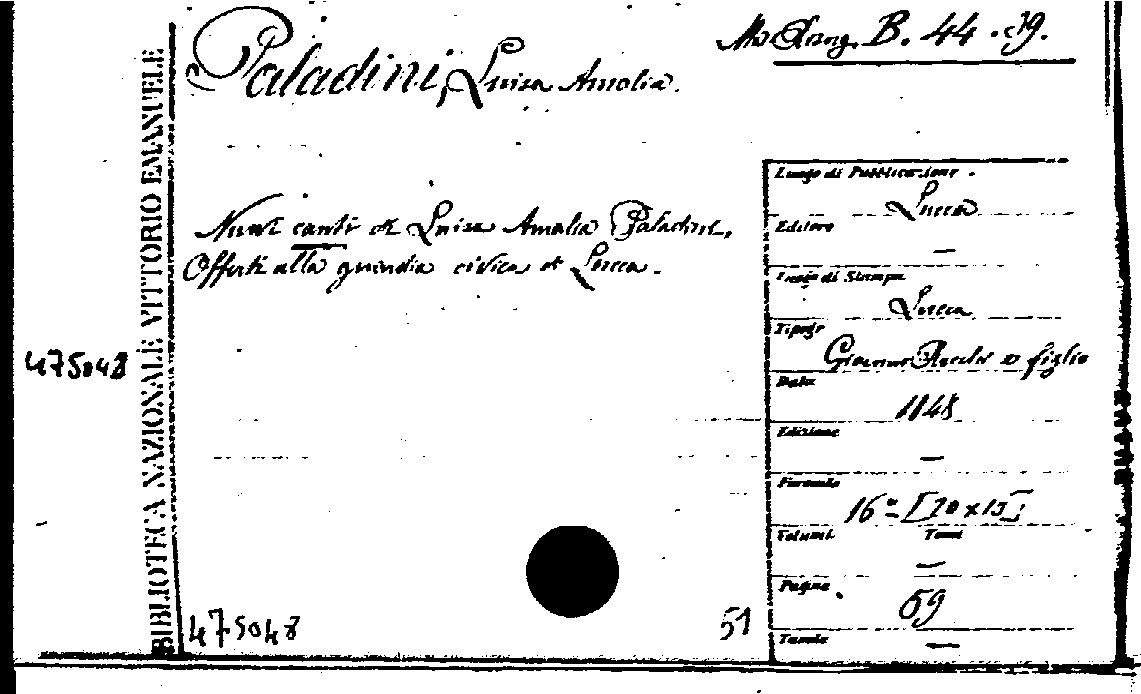 Paladini, Luisa Amalia.
B. 44. 39.
BIBLIOTECA NAZIONALE VITTORIO EMANUELE
Nuovi canti di Luisa Amalia Paladini.
Offerti alla guardia civica di Lucca.
475048
475048
51
Luogo di Pubblicazione.
Lucca
Editore
—
Luogo di Stampa
Lucca
Tipogr
Giovanni e figlio
Data
1848
Edizione
—
Formato
16º [20 x 15]
Volumi. Tomi
—
Pagine
59
Tavole
—